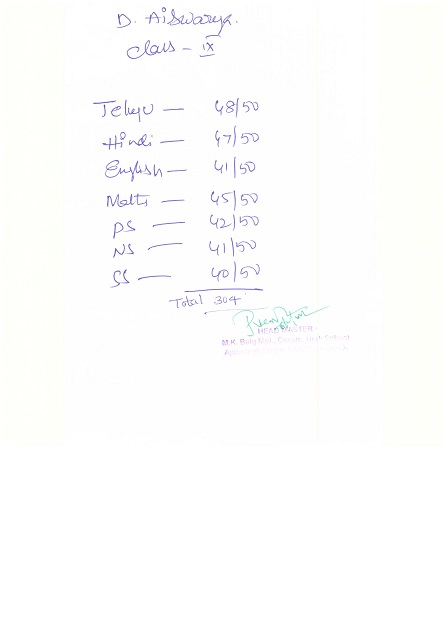 D. Aiswarya.
Class - IX
Telugu — 48/50
Hindi — 47/50
English — 41/50
Maths — 45/50
PS — 42/50
NS — 41/50
SS — 40/50
Total 304
HEAD MASTER
M.K. Baig